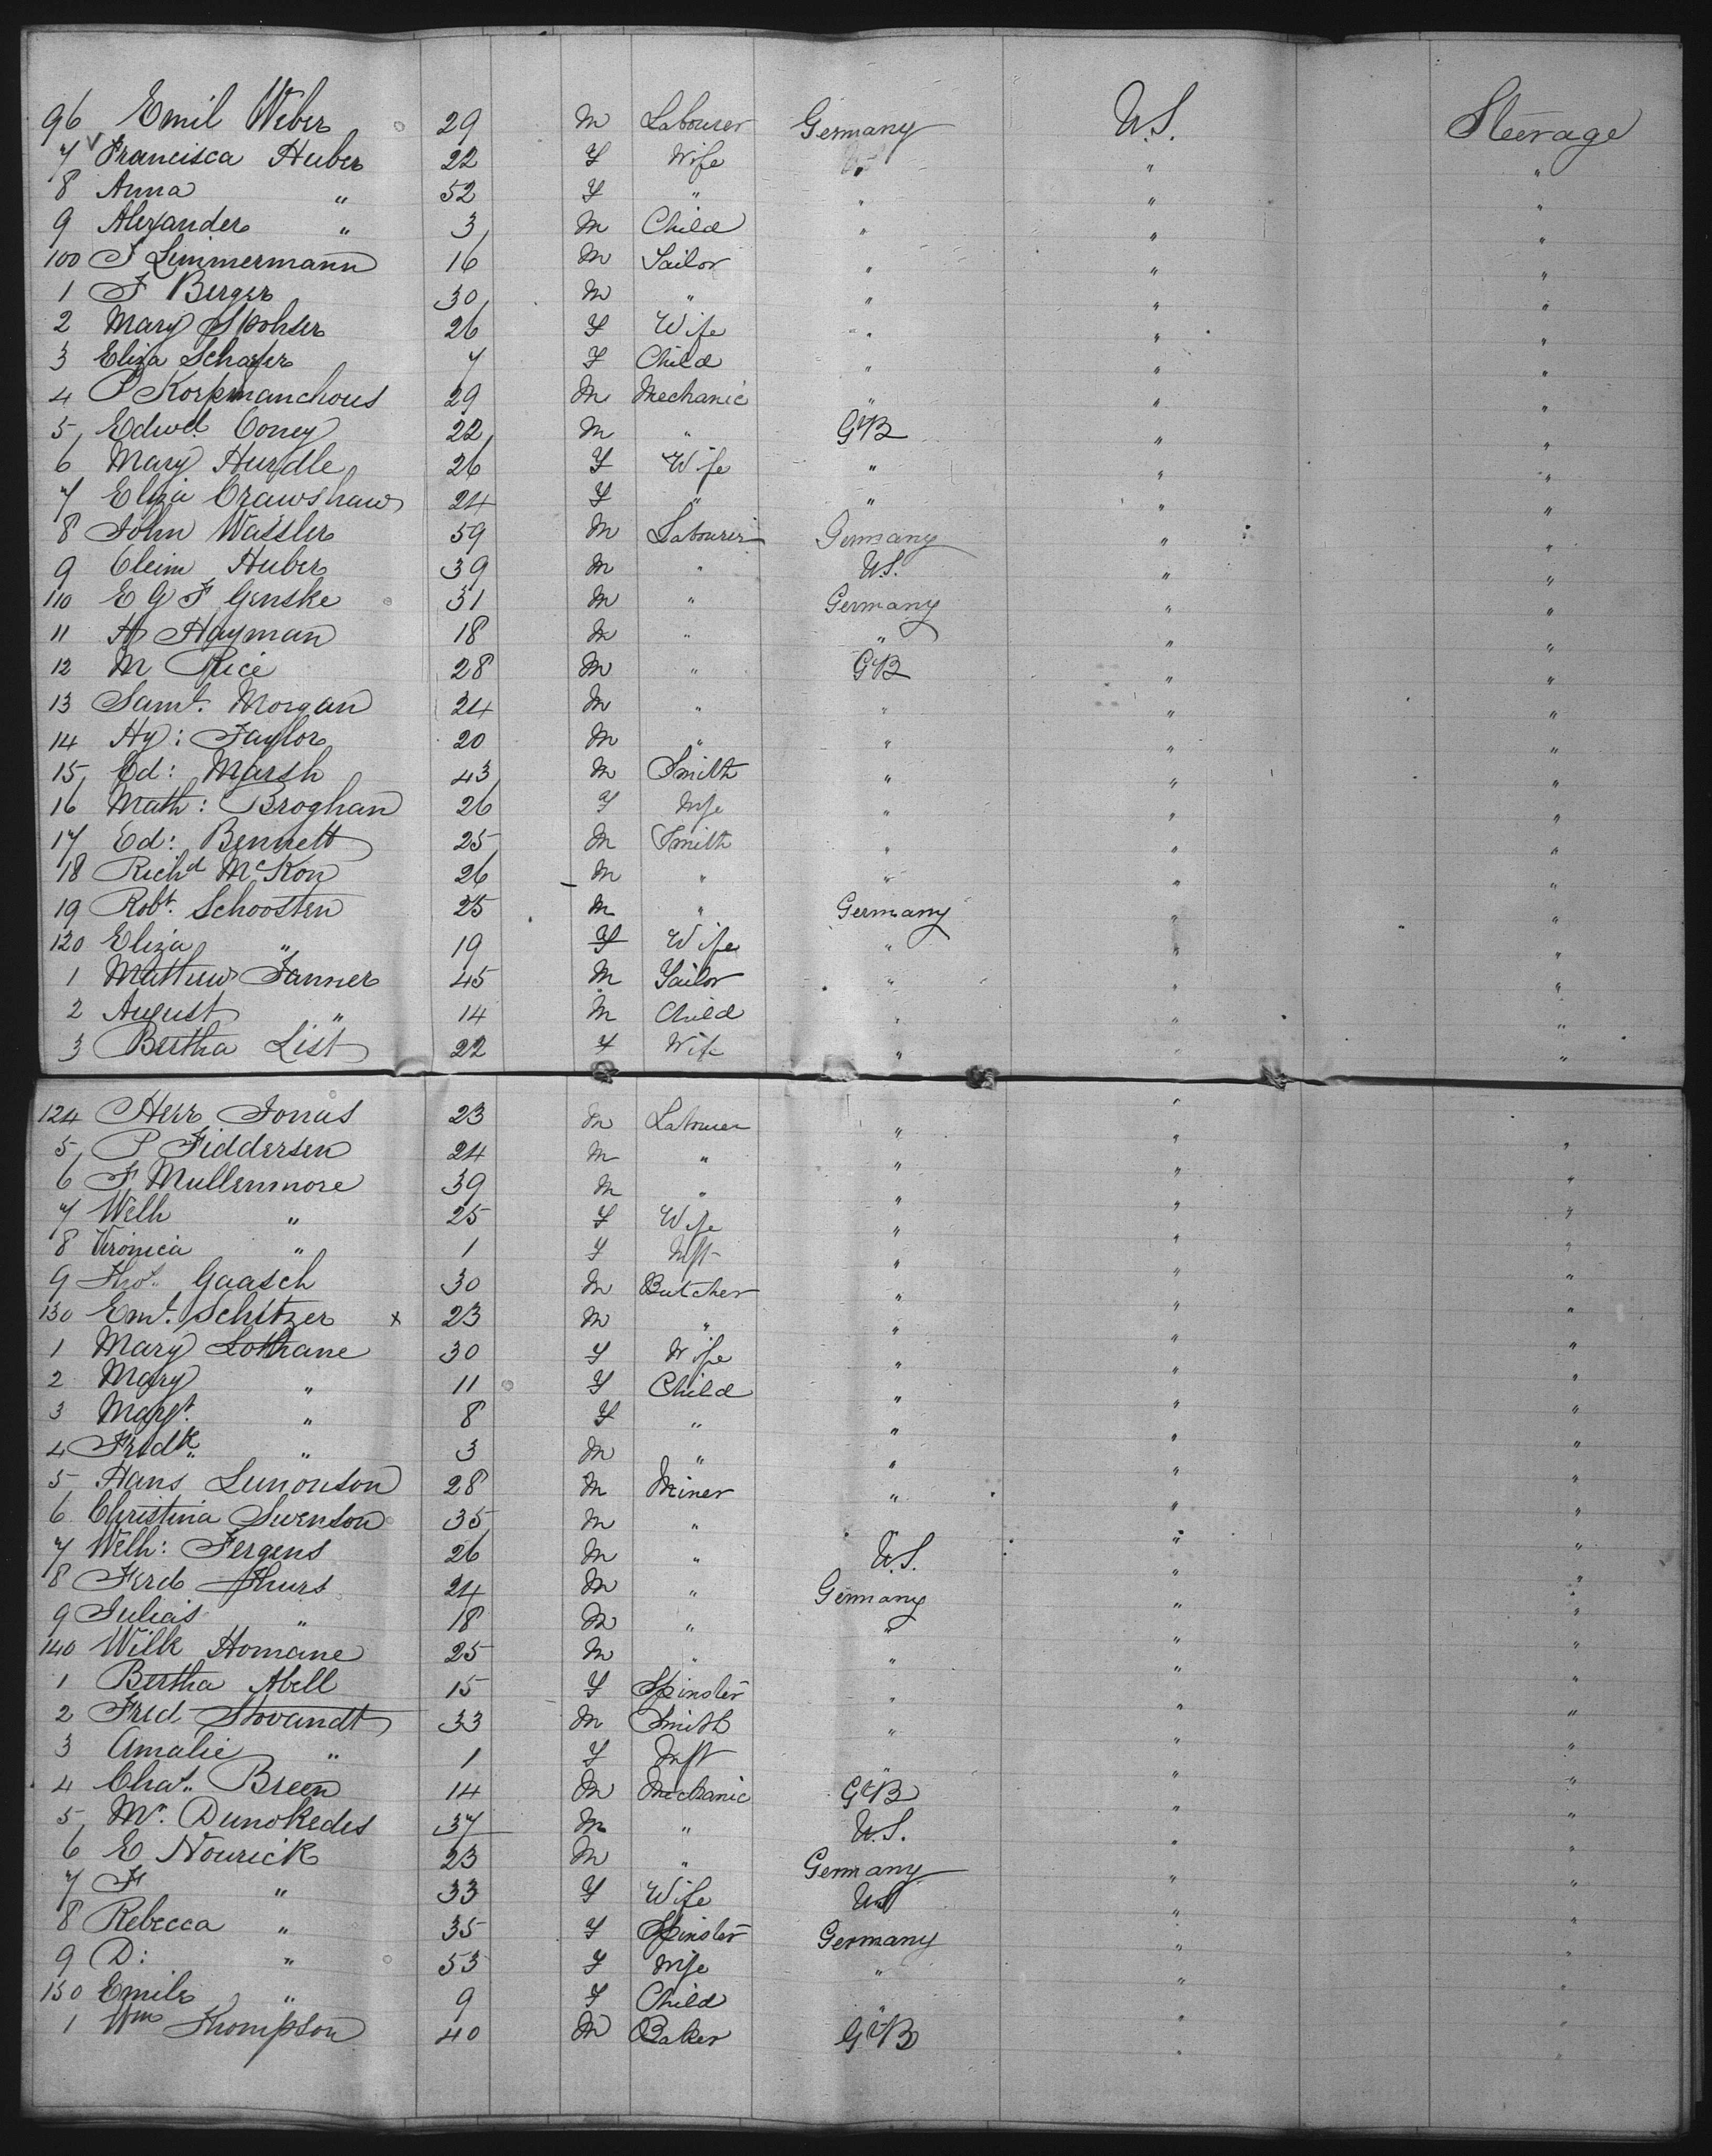 96 Emil Weber 29 M Labourer Germany U.S. Steerage
7 Francisca Huber 22 F Wife " " "
8 Anna " 52 F " " " "
9 Alexander " 3 M Child " " "
100 16 M " " "
1 F Berger 30 M " " " "
2 Mary 26 F Wife " " "
3 Eliza Schafer 7 F Child " " "
4 P 29 M Mechanic " " "
5 Edwd. Coney 22 M " GtB " "
6 Mary Hurdle 26 F Wife " " "
7 Eliza Crawshaw 24 F " " " "
8 John Wassler 59 M Labourer Germany " "
9 Huber 39 M " U.S. " "
110 E G F Genske 31 M " Germany " "
11 A Hayman 18 M " " " "
12 M Rice 28 M " GtB " "
13 Saml. Morgan 24 M " " " "
14 Hy: Taylor 20 M " " " "
15 Ed: Marsh 43 M Smith " " "
16 Math: Broghan 26 F Wife " " "
17 Ed: Bennett 25 M Smith " " "
18 Richd McKon 26 M " " " "
19 Robt. Schoosten 25 M " Germany " "
120 Eliza " 19 F Wife " " "
1 Mathew Fanner 45 M " " "
2 August " 14 M Child " " "
3 Bertha List 22 F Wife " " "
124 Herr Jonas 23 M Labourer " "
5 P Fiddersen 24 M " " " "
6 F Mullenmore 39 M " " " "
7 Welh " 25 F Wife " " "
8 Veronica " 1 F Inft " " "
9 Thos. Gaasch 30 M Butcher " " "
130 Eml. Schitzer x 23 M " " " "
1 Mary Lothane 30 F Wife " " "
2 Mary " 11 F Child " " "
3 Margt. " 8 F " " " "
4 Fredk. " 3 M " " " "
5 Hans 28 M Miner " " "
6 Christina Swenson 35 M " " " "
7 Welh: Fergens 26 M " U.S. " "
8 Ferd Thurs 24 M " Germany " "
9 Julias " 18 M " " " "
140 Wilk Homane 25 M " " " "
1 Bertha Abell 15 F Spinster " " "
2 Fred 33 M Smith " " "
3 Amalie " 1 F Inft " " "
4 Chas. Breen 14 M Mechanic GtB " "
5 37 M " U.S. " "
6 E Nourick 23 M " Germany " "
7 F " 33 F Wife US " "
8 Rebecca " 35 F Spinster Germany " "
9 D: " 53 F Wife " " "
150 Emile " 9 F Child " " "
1 Wm Thompson 40 M Baker GtB " "